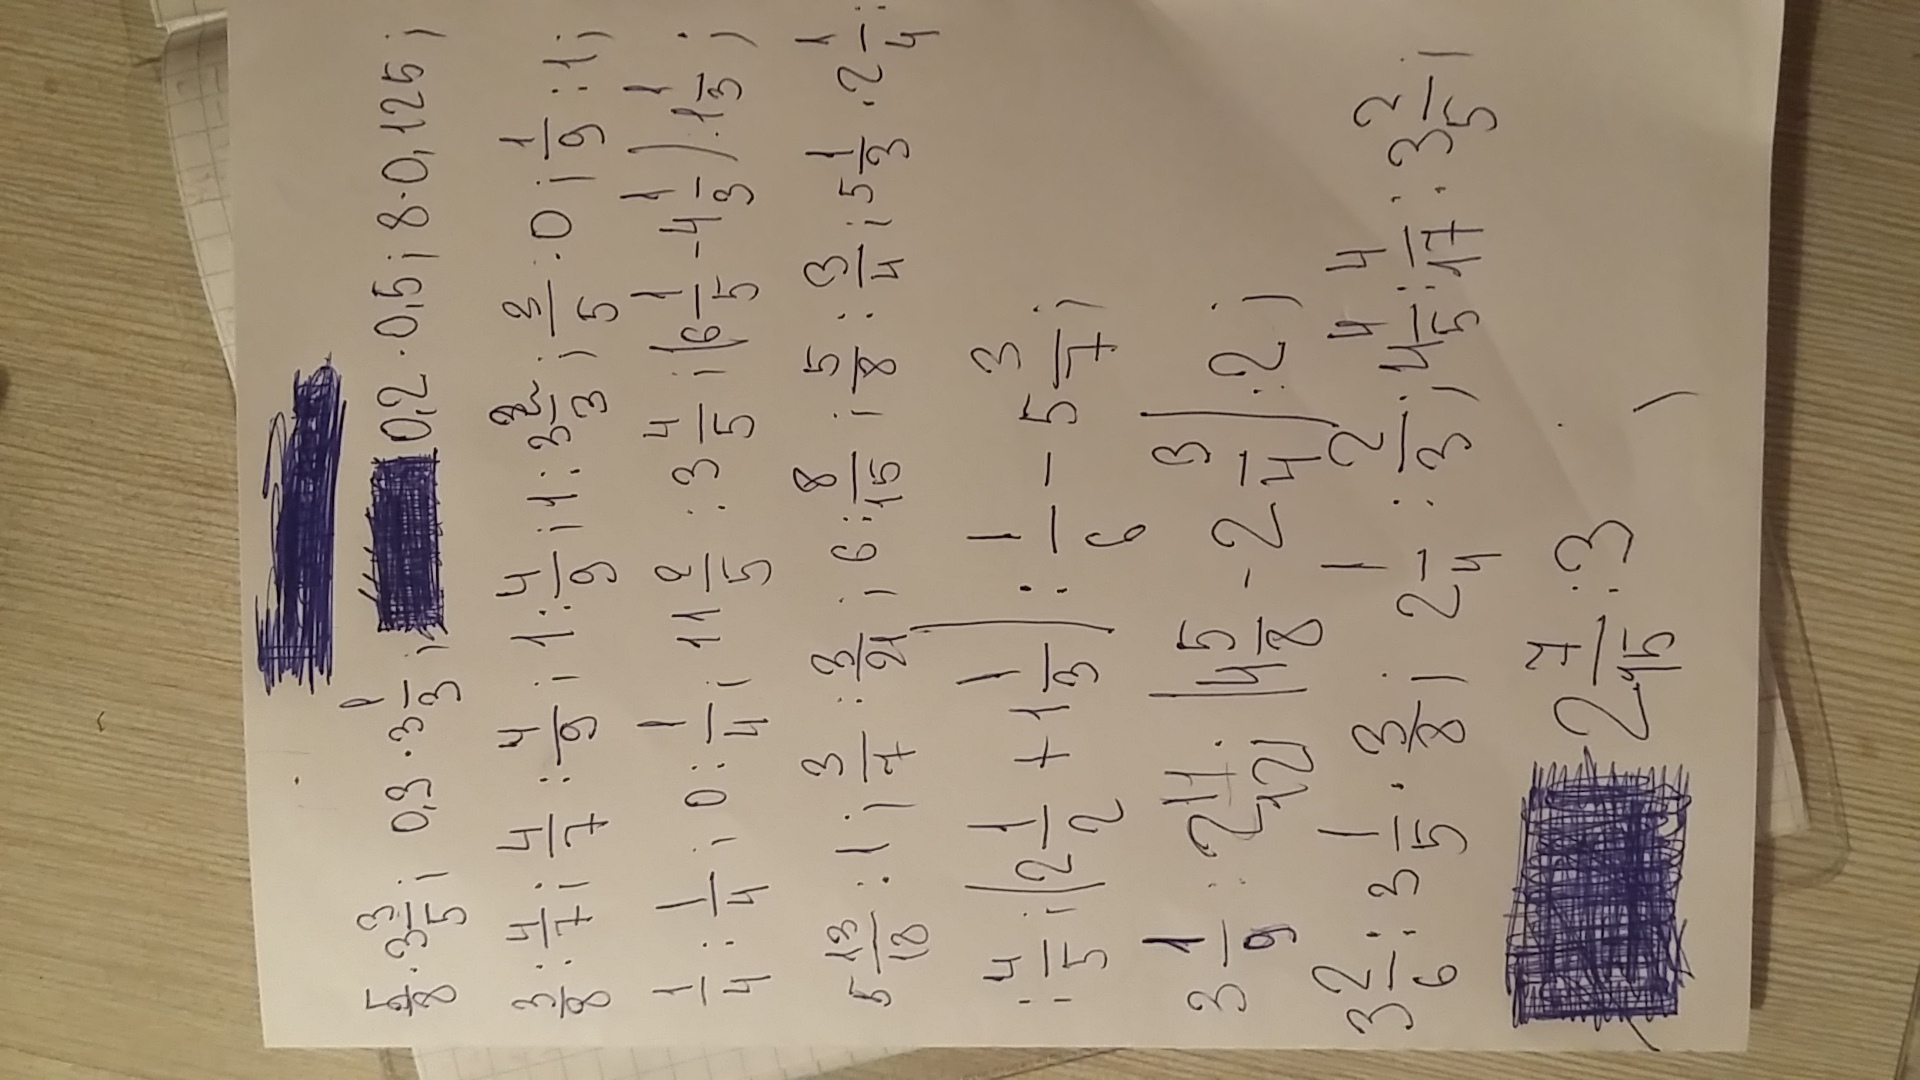 5/8 · 3 3/5 ; 0,3 · 3 1/3 ; 0,2 · 0,5 ; 8 · 0,125 ;
3/8 : 4/7 ; 4/7 : 4/9 ; 1 : 4/9 ; 1 : 3 2/3 ; 2/5 : 0 ; 1/9 : 1 ;
1/4 : 1/4 ; 0 : 1/4 ; 11 2/5 : 3 4/5 ; (6 1/5 - 4 1/3) · 1 1/3 ;
5 13/18 : 1 ; 3/7 : 3/21 ; 6 : 8/15 ; 5/8 : 3/4 ; 5 1/3 · 2 1/4 :
: 4/5 ; (2 1/2 + 1 1/3) : 1/6 - 5 3/7 ;
3 1/9 : 2 11/12 · (4 5/8 - 2 3/4) : 2 ;
3 2/6 : 3 1/5 · 3/8 ; 2 1/4 : 2/3 ; 4 4/5 : 4/17 : 3 2/5 ;
2 7/15 : 3